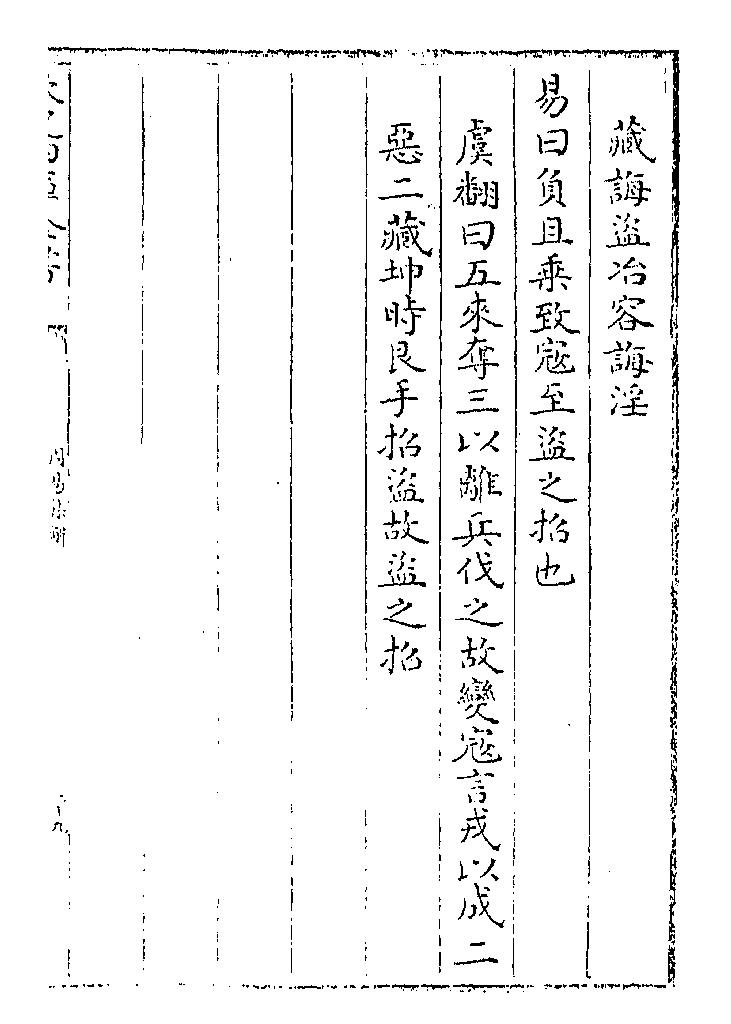 藏誨盜冶容誨淫
易曰負且乘致寇至盜之招也
虞翻曰五來奪三以離兵伐之故變寇言戎以成二
惡二藏坤時艮手招盜故盜之招
周易集解